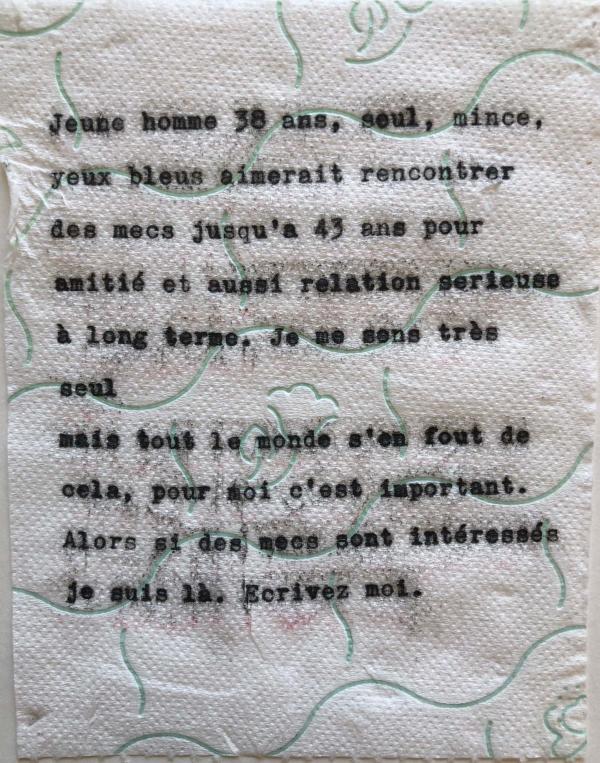 Jeune homme 38 ans, seul, mince,
yeux bleus aimerait rencontrer
des mecs jusqu'a 43 ans pour
amitié et aussi relation serieuse
à long terme. Je me sens très
seul
mais tout le monde s'en fout de
cela, pour moi c'est important.
Alors si des mecs sont intéressés
je suis là. Ecrivez moi.